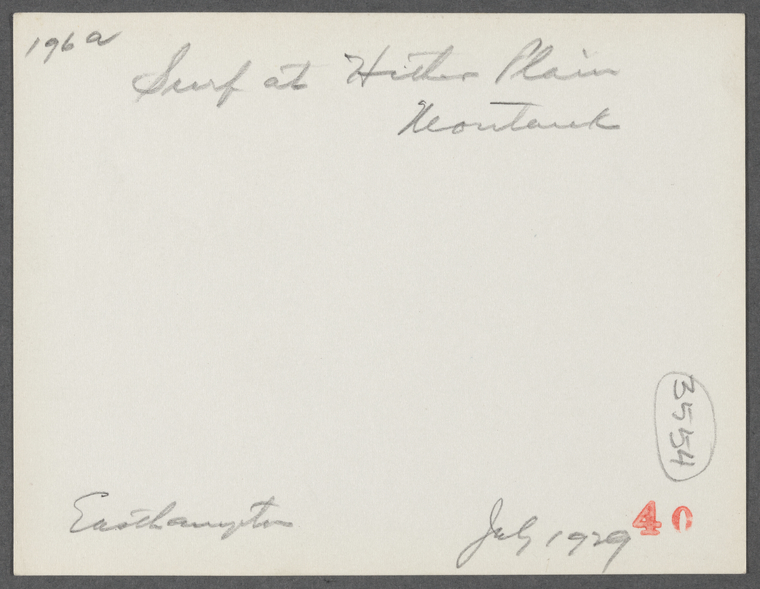 196a
Surf at Hither Plain
Montauk
3554
Easthampton
July 1929
40